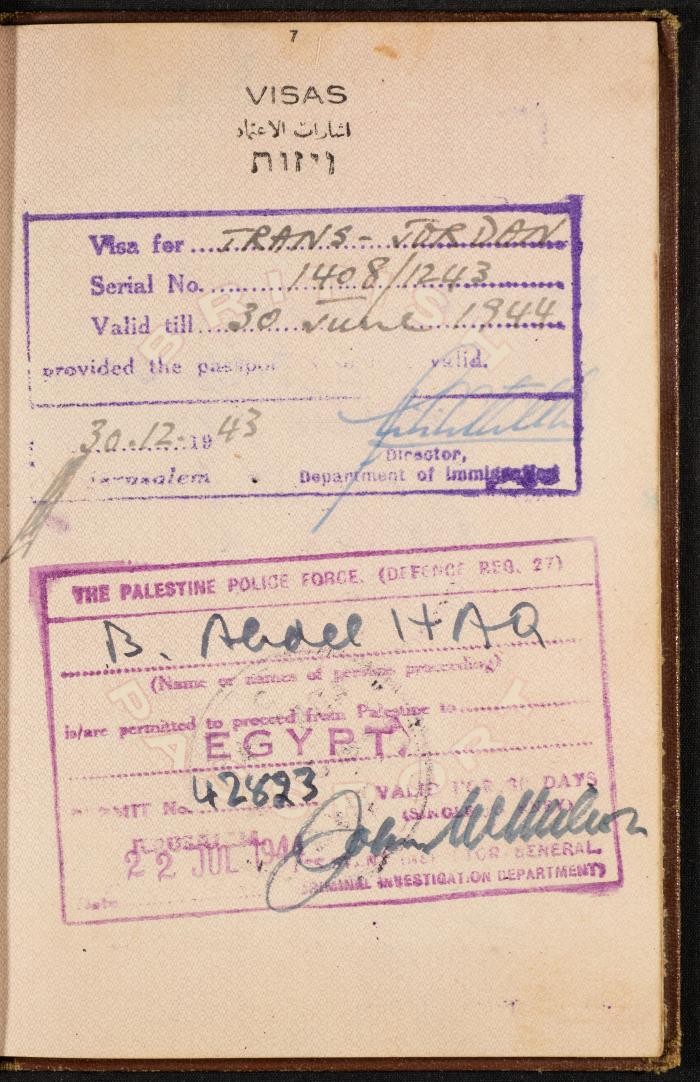 7
VISAS
اشارات الاعتماد
ויזות
Visa for TRANS-JORDAN
Serial No. 1408/1243
Valid till 30 June 1944
provided the passport valid.
30.12.1943
Jerusalem
Director,
Department of Immigration
THE PALESTINE POLICE FORCE. (DEFENCE REG. 27)
B. Abdel HAQ
(Name or names of persons proceeding)
is/are permitted to proceed from Palestine to
EGYPT.
42823
PERMIT No.
VALID FOR 30 DAYS
(SINGLE
JERUSALEM
22 JUL 1944
INSPECTOR GENERAL,
CRIMINAL INVESTIGATION DEPARTMENT)
Date
BRITISH
PASSPORT